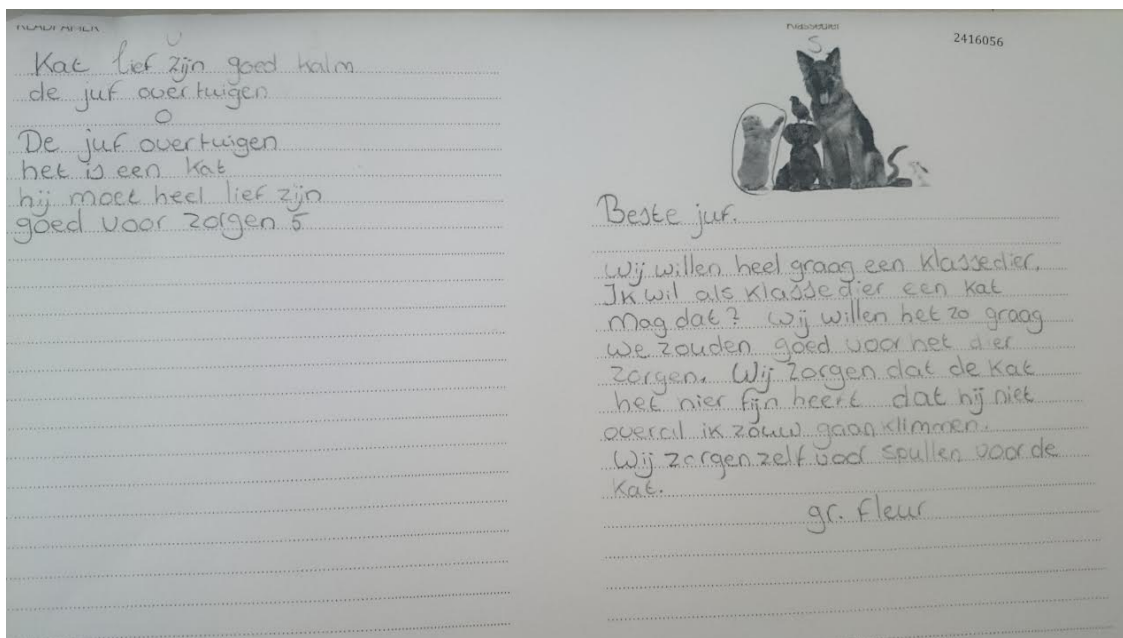 KLADPAPIER
Kat lief zijn goed kalm
de juf overtuigen
De juf overtuigen
het is een kat
hij moet heel lief zijn
goed voor zorgen 5
2416056
Beste juf.
Wij willen heel graag een klassedier.
Ik wil als klassedier een kat
Mag dat? Wij willen het zo graag
we zouden goed voor het dier
zorgen. Wij zorgen dat de kat
het hier fijn heeft dat hij niet
overal ik zouw gaan klimmen.
Wij zorgen zelf voor spullen voor de
kat.
gr. Fleur